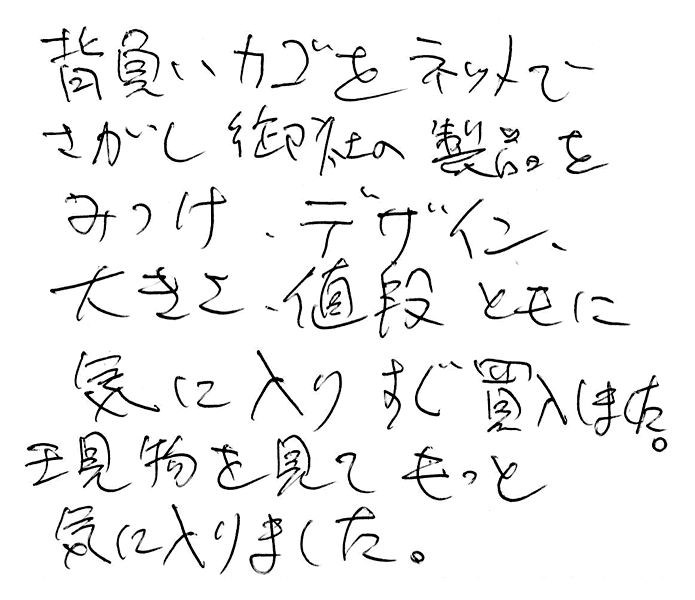 背負いカゴをネットで
さがし御社の製品を
みつけ、デザイン、
大きさ、値段ともに
気に入りすぐ買入しました。
現物を見てもっと
気に入りました。